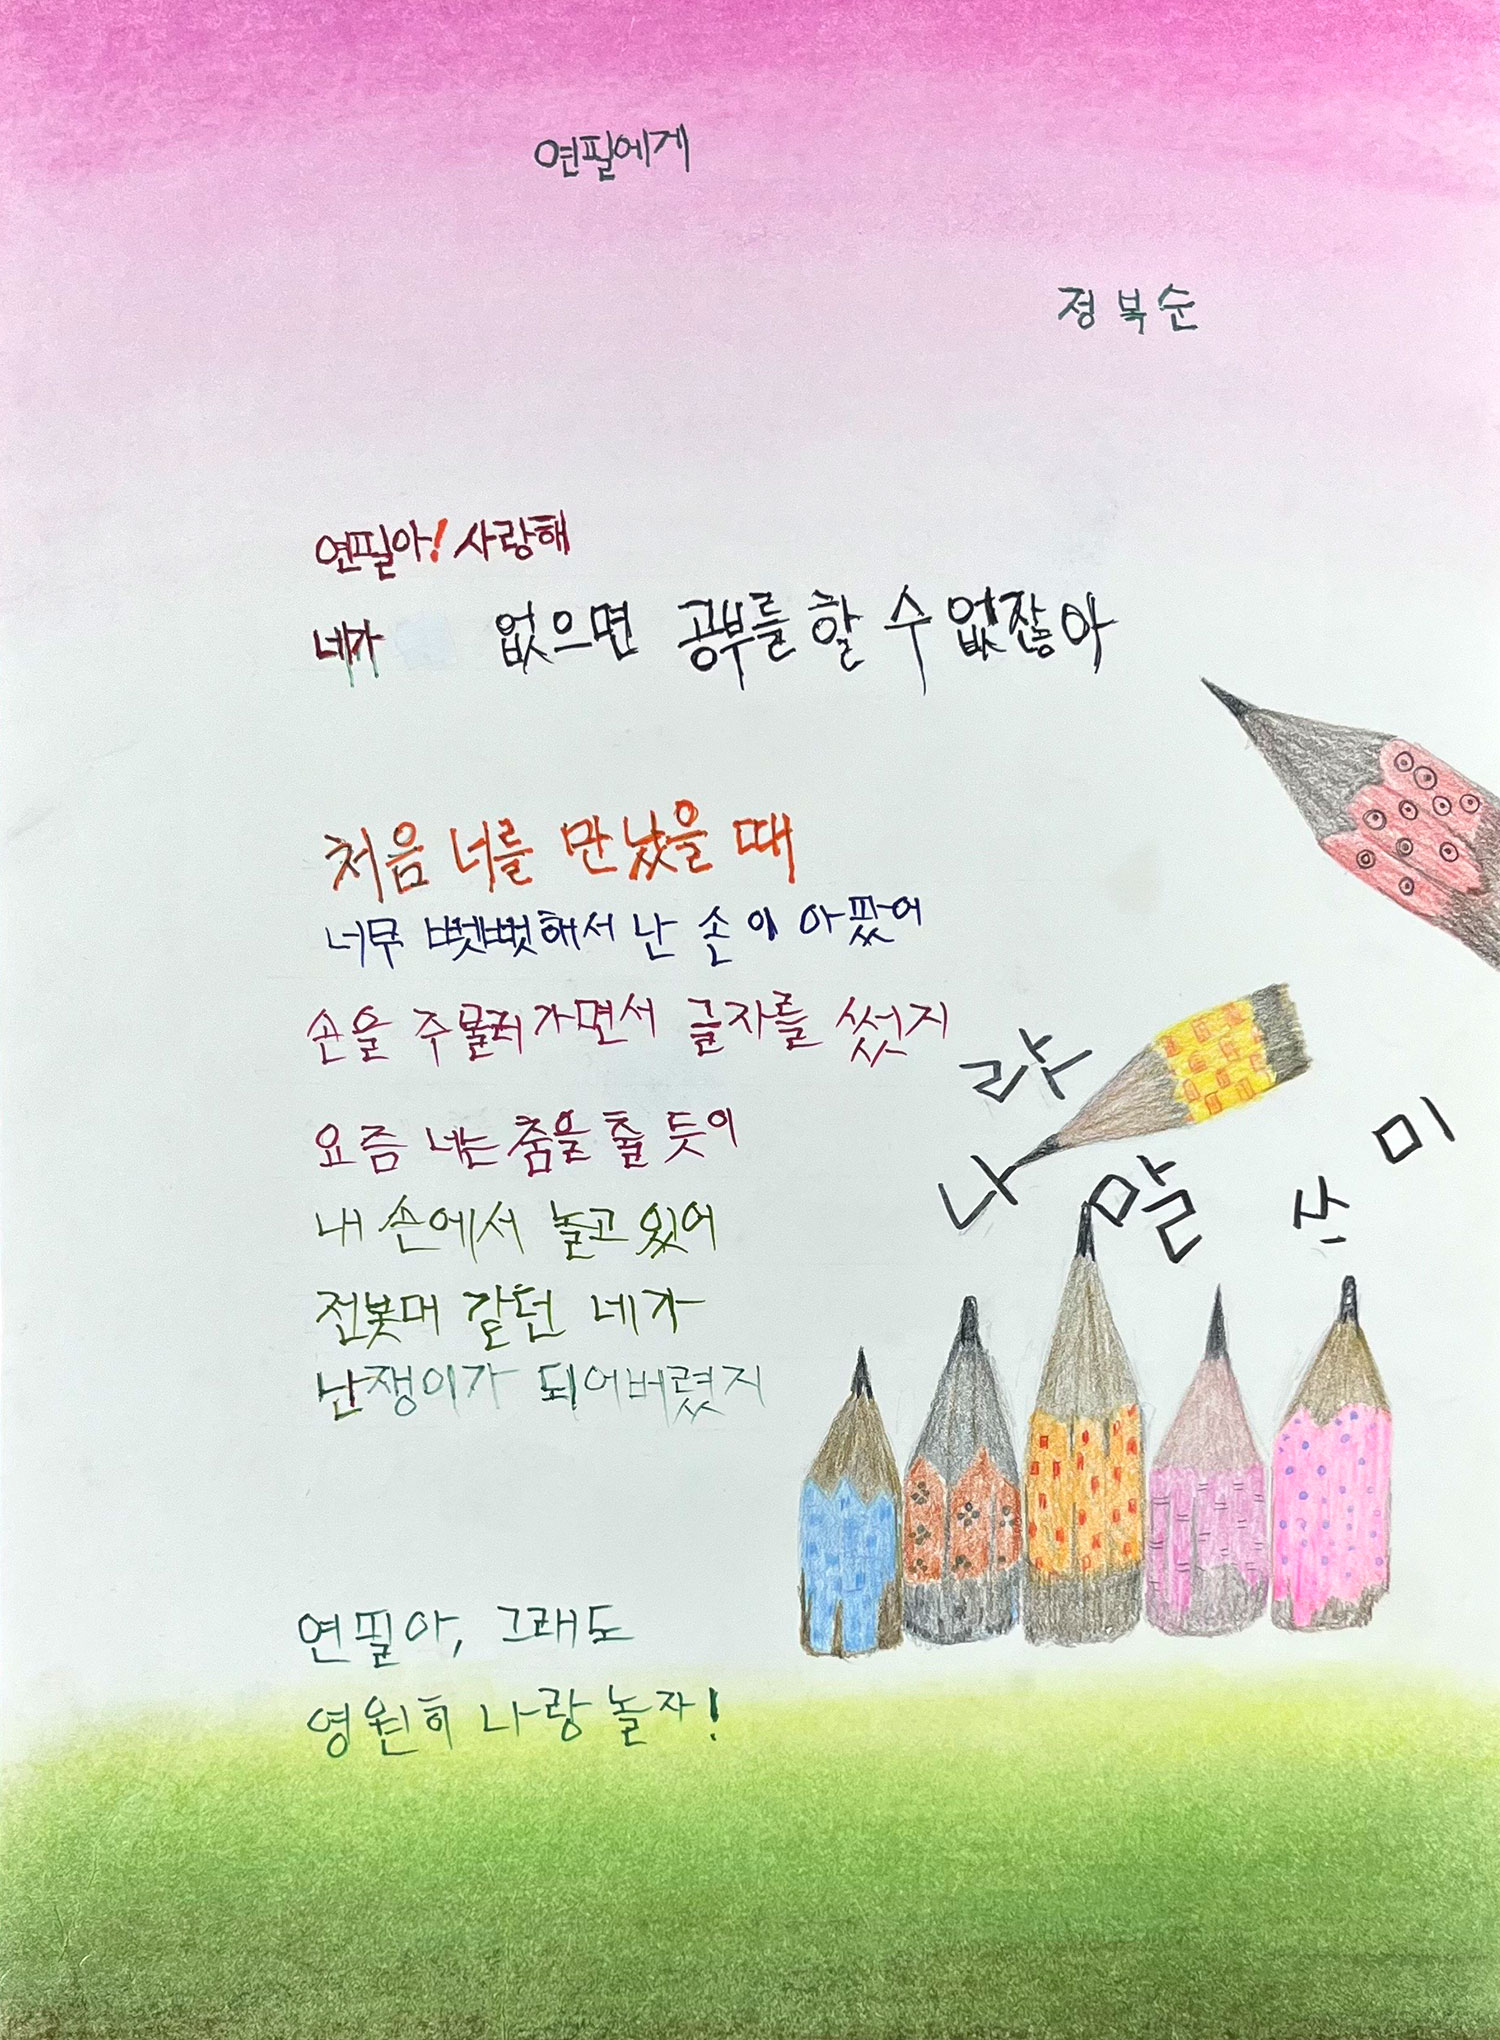 연필에게
정복순
연필아! 사랑해
네가 없으면 공부를 할 수 없잖아
처음 너를 만났을 때
너무 뻣뻣해서 난 손이 아팠어
손을 주물러가면서 글자를 썼지
요즘 너는 춤을 출 듯이
내 손에서 놀고 있어
전봇대 같던 네가
난쟁이가 되어버렸지
연필아, 그래도
영원히 나랑 놀자!
나 랏 말 쓰 미